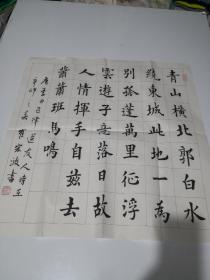 青山橫北郭白水
繞東城此地一為
別孤蓬萬里征浮
雲遊子意落日故
人情揮手自茲去
蕭蕭班馬鳴
唐李白五律送友人詩
辛卯之 宏波書